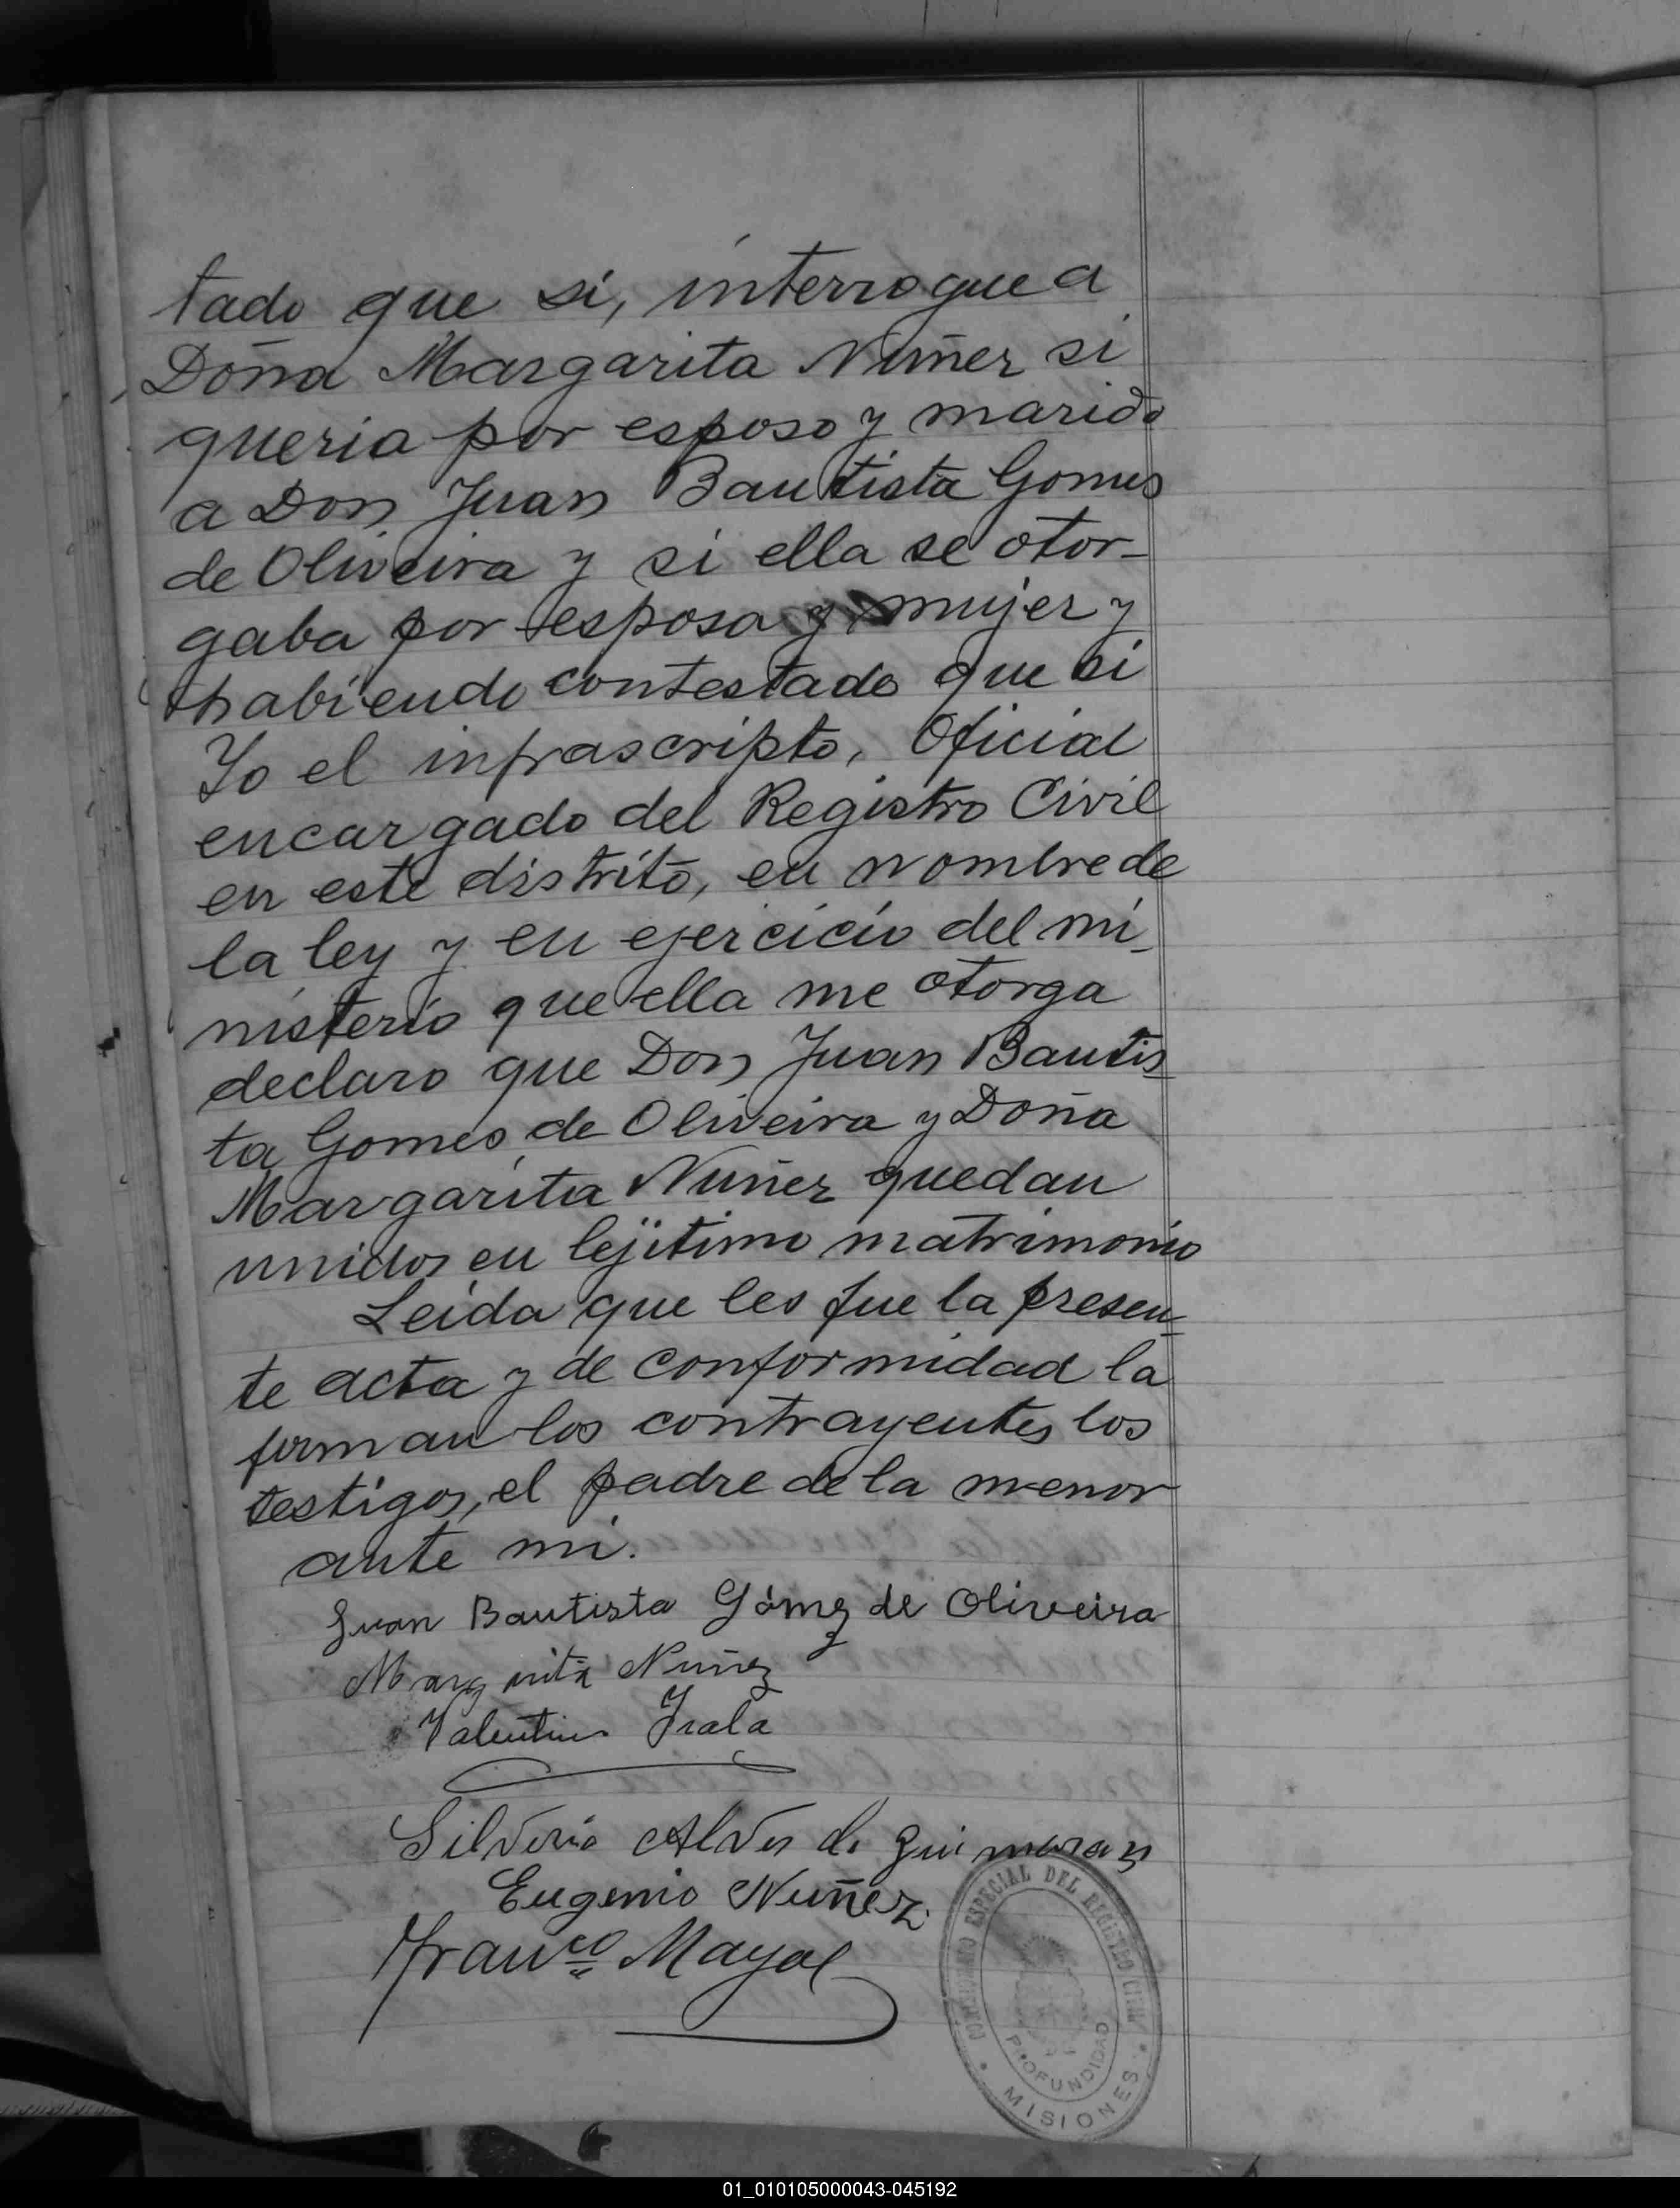 tado que si, interrogue a
Doña Margarita Nuñez si
queria por esposo y marido
a Don Juan Bautista Gomes
de Oliveira y si ella se otor-
gaba por esposa y mujer y
habiendo contestado que si
Yo el infrascripto, Oficial
encargado del Registro Civil
en este distrito, en nombre de
la ley y en ejercicio del mi-
nisterio que ella me otorga
declaro que Don Juan Bautis-
ta Gomes de Oliveira y Doña
Margarita Nuñez quedan
unidos en lejitimo matrimonio
Leida que les fue la presen-
te acta y de conformidad la
firman los contrayentes los
testigos, el padre de la menor
ante mi.
Juan Bautista Gómez de Oliveira
Margarita Nuñez
Valentin Irala
Silverio Alves de Guimaraes
Eugenio Nuñez.
Franco Mayol
ESPECIAL DEL REGISTRO CIVIL
PROFUNDIDAD
MISIONES
01_010105000043-045192